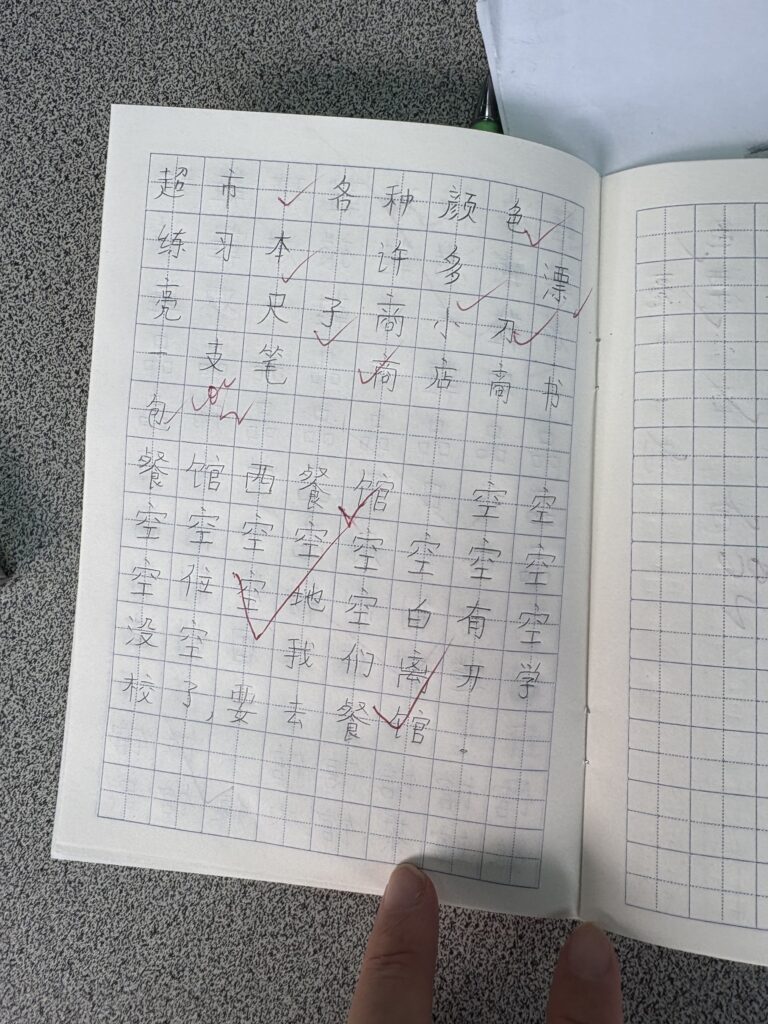 超市 各种颜色
练习本 许多 漂
亮 尺子 商小刀
一支笔 商店 商书
包
餐馆西餐馆 空空
空空空空空空空空
空位空地空白有空
没空 我们离开学
校了,要去餐馆。